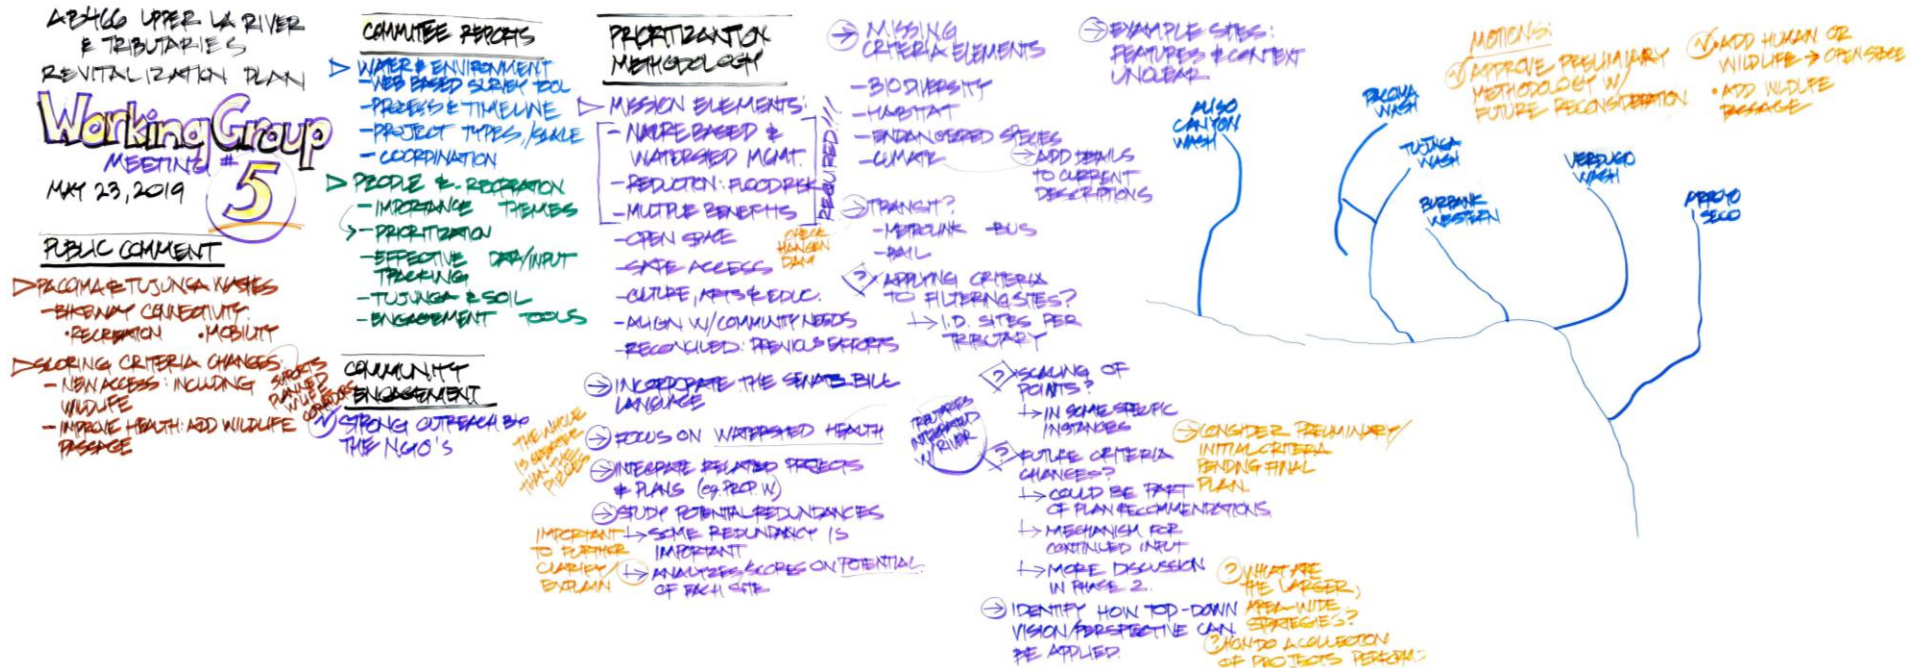 AB466 UPPER LA RIVER
& TRIBUTARIES
REVITALIZATION PLAN
Working Group
MEETING # 5
MAY 23, 2019
PUBLIC COMMENT
PACOIMA & TUJUNGA WASHES
- BIKEWAY CONNECTIVITY:
• RECREATION • MOBILITY
SCORING CRITERIA CHANGES:
- NEW ACCESS: INCLUDING
WILDLIFE
- IMPROVE HEALTH: ADD WILDLIFE
PASSAGE
SUPPORTS
PLANNED
WILDLIFE
CORRIDORS
COMMITTEE REPORTS
WATER & ENVIRONMENT
- WEB BASED SURVEY TOOL
- PROCESS & TIMELINE
- PROJECT TYPES/SCALE
- COORDINATION
PEOPLE & RECREATION
- IMPORTANCE THEMES
→ - PRIORITIZATION
- EFFECTIVE DATA/INPUT
TRACKING
- TUJUNGA & SOIL
- ENGAGEMENT TOOLS
COMMUNITY
ENGAGEMENT
STRONG OUTREACH BY
THE NGO'S
PRIORITIZATION
METHODOLOGY
MISSION ELEMENTS:
- NATURE BASED &
WATERSHED MGMT.
- REDUCTION: FLOOD RISK
- MULTIPLE BENEFITS
REQUIRED!!!
- OPEN SPACE
- SAFE ACCESS
- CULTURE, ARTS & EDUC.
- ALIGN W/COMMUNITY NEEDS
- RECONCILED: PREVIOUS EFFORTS
CHECK
HANSEN
DAM
→ INCORPORATE THE SENATE BILL
LANGUAGE
→ FOCUS ON WATERSHED HEALTH
→ INTEGRATE RELATED PROJECTS
& PLANS (eg. PROP. W)
→ STUDY POTENTIAL REDUNDANCES
↳ SOME REDUNDANCY IS
IMPORTANT
↳ ANALYZES/SCORES ON POTENTIAL
OF EACH SITE
THE WHOLE
IS GREATER
THAN THE
PIECES
IMPORTANT
TO FURTHER
CLARIFY/
EXPLAIN
→ MISSING
CRITERIA ELEMENTS
- BIODIVERSITY
- HABITAT
- ENDANGERED SPECIES
- CLIMATE
→ ADD DETAILS
TO CURRENT
DESCRIPTIONS
→ TRANSIT?
- METROLINK - BUS
- RAIL
? APPLYING CRITERIA
TO FILTERING SITES?
↳ I.D. SITES PER
TRIBUTARY
? SCALING OF
POINTS?
↳ IN SOME SPECIFIC
INSTANCES
TRIBUTARIES
INTEGRATED
W/ RIVER
? FUTURE CRITERIA
CHANGES?
↳ COULD BE PART
OF PLAN RECOMMENDATIONS.
↳ MECHANISM FOR
CONTINUED INPUT
↳ MORE DISCUSSION
IN PHASE 2.
→ CONSIDER PRELIMINARY/
INITIAL CRITERIA
PENDING FINAL
PLAN.
→ IDENTIFY HOW TOP-DOWN
VISION/PERSPECTIVE CAN
BE APPLIED.
? WHAT ARE
THE LARGER,
AREA-WIDE
STRATEGIES?
? HOW DO A COLLECTION
OF PROJECTS PERFORM?
→ EXAMPLE SITES:
FEATURES & CONTEXT
UNCLEAR
ALISO
CANYON
WASH
PACOIMA
WASH
TUJUNGA
WASH
BURBANK
WESTERN
VERDUGO
WASH
ARROYO
SECO
MOTIONS:
APPROVE PRELIMINARY
METHODOLOGY W/
FUTURE RECONSIDERATION
ADD HUMAN OR
WILDLIFE → OPEN SPACE
• ADD WILDLIFE
PASSAGE